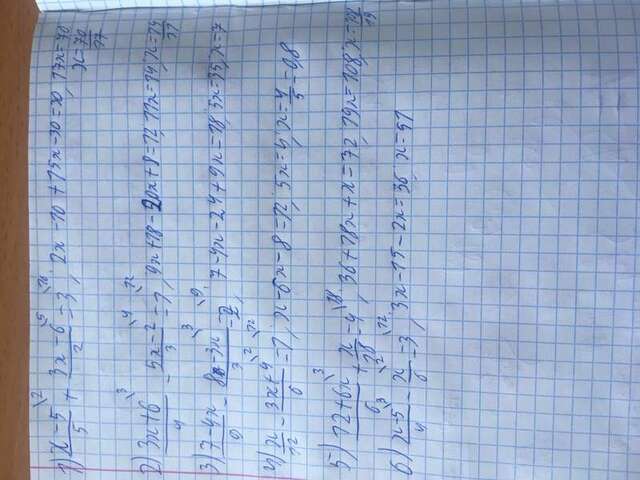 1) (x-5)/5 \2 + (3x-6)/2 \5 = 3 \10; 2x-10+15x-30=30, 17x=70
x=70/17
2) (3x+6)/4 \3 - (5x-2)/3 \4 = 1 \12, 9x+18-20x+8=12, 11x=14, x=14/11
3) (7-4x)/9 - (8-3x)/3 \3 = 2 \9, 7-4x-24+9x=18, 5x=35, x=7
4) x/12 - (3x+4)/6 \2 = 1 \12; x-6x-8=12, 5x=4, x=4/5=0,8
5) (12+6x)/6 \3 + x/18 = 4 \18, 36+18x+x=72, 19x=108, x=108/19
6) (x-5)/4 \3 - x/6 \2 = 3 \12, 3x-15-2x=36, x=51